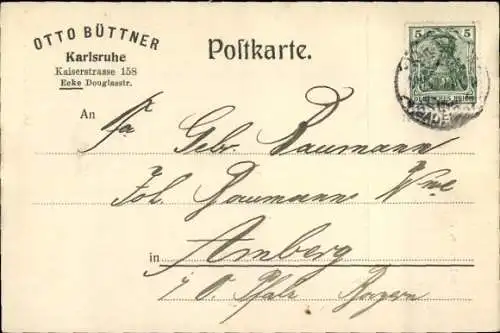 OTTO BÜTTNER
Karlsruhe
Kaiserstrasse 158
Ecke Douglasstr.
Postkarte.
5 5
DEUTSCHES REICH
An
Fa Gebr. Baumann
Joh. Baumanns Wwe
in Amberg
Pfalz Bayern